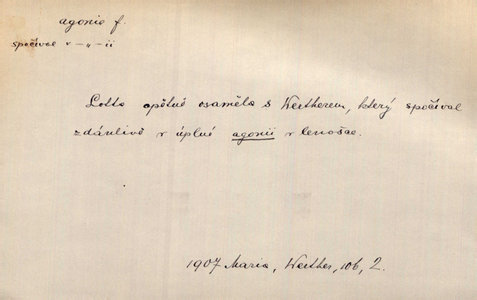 agonie f.
spočívat v -„- ii
Lotta opětně osaměla s Wertherem, který spočíval
zdánlivě v úplné agonii v lenošce.
1907 Maria, Werther, 106, 2.